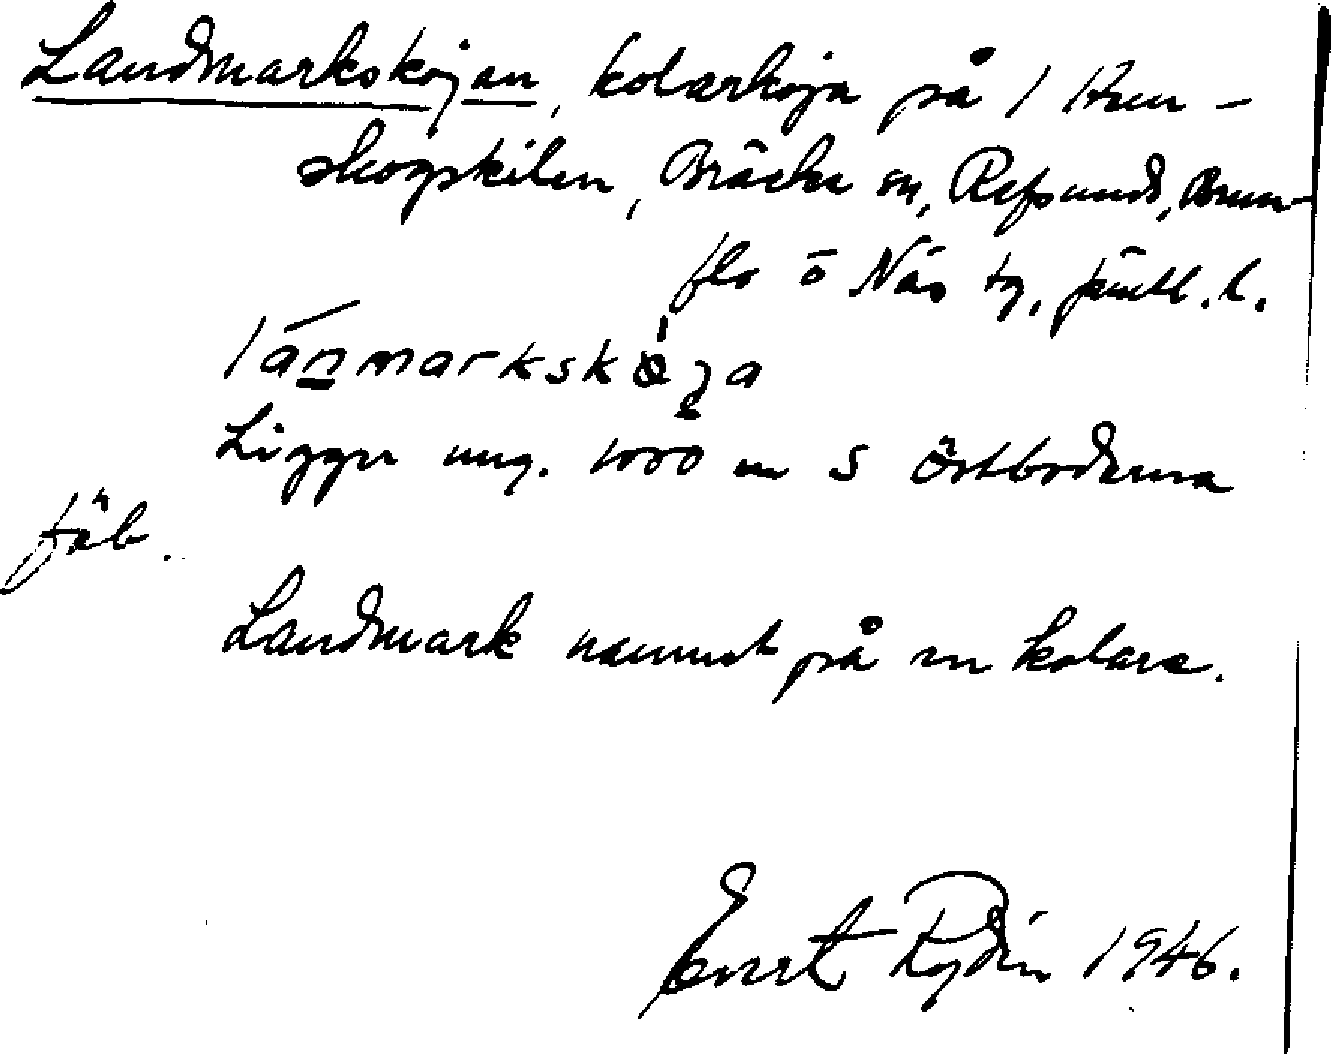 Landmarkskojan, kolarkoja på
skogskilen, Bräcke sn, Refsunds, Brun-
flo o Näs tg, Jämtl. l.
Ligger ung. 1000 m S Östbodarna
fäb.
Landmark namnet på en kolare.
Evert Rydin 1946.